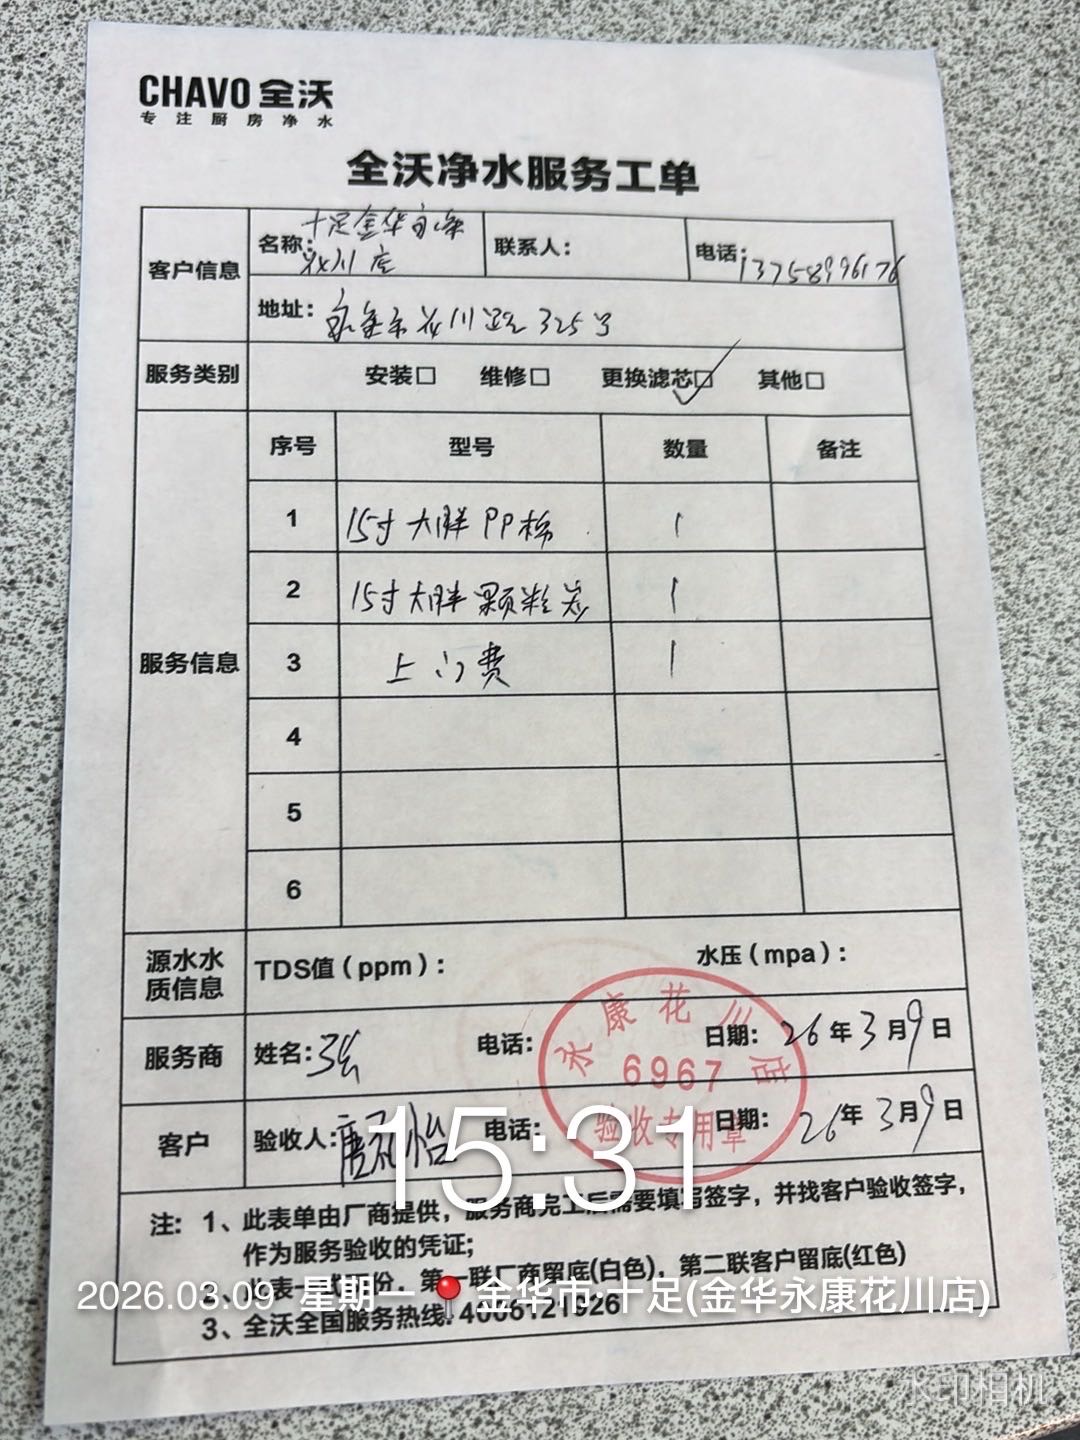 CHAVO 全沃
专注厨房净水
全沃净水服务工单
客户信息
名称: 十足金华永康花川店
联系人:
电话: 13758996176
地址: 永康市花川路325号
服务类别 安装□ 维修□ 更换滤芯□✓ 其他□
服务信息
序号 型号 数量 备注
1 15寸大胖PP棉 1
2 15寸大胖颗粒炭 1
3 上门费 1
4
5
6
源水水质信息
TDS值(ppm): 水压(mpa):
服务商 姓名: 电话: 日期: 26年3月9日
客户 验收人: 电话: 日期: 26年3月9日
永康花川店
6967
验收专用章
15:31
注: 1、此表单由厂商提供，服务商完工后需要填写签字，并找客户验收签字，
作为服务验收的凭证;
2、此表一式两份，第一联厂商留底(白色)，第二联客户留底(红色)
2026.03.09 星期一 金华市·十足(金华永康花川店)
3、全沃全国服务热线: 4006121926
水印相机